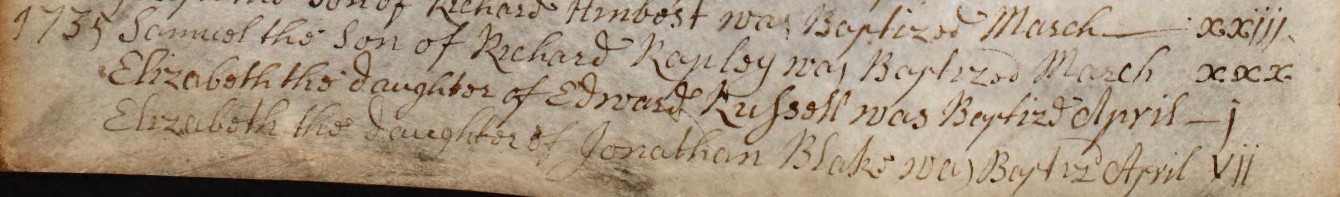 son of Richard Hinbost was Baptized March — xxiij.
1735 Samuel the Son of Richard Ranley was Baptized March xxx
Elizabeth the daughter of Edward Russell was Baptizd April — j
Elizabeth the daughter of Jonathan Blake was Baptizd April vij